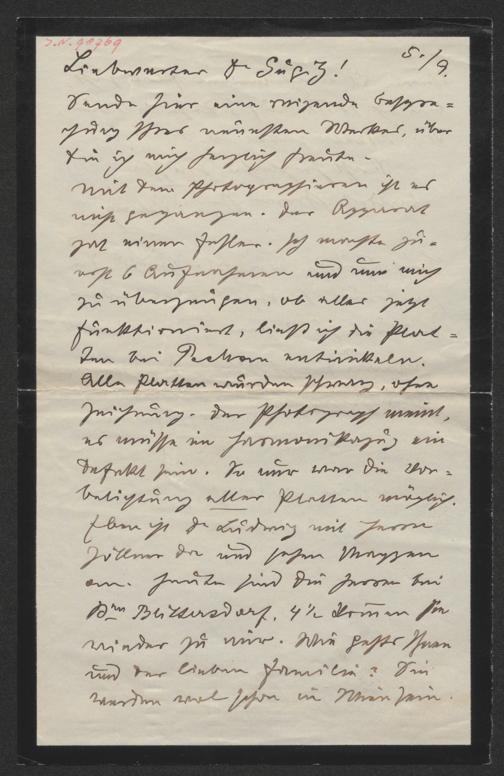 J.N. 98769
5./9.
Liebwerter Dr Gugitz!
Sende hier eine reizende Bespre=
chung Ihres neuesten Werkes, über
die ich mich herzlich freute.
Mit dem Photographieren ist es
nicht gegangen. Der Apparat
hat einen Fehler. Ich machte zu=
erst 6 Aufnahmen und um mich
zu überzeugen, ob alles jetzt
funktioniert, ließ ich die Plat=
ten bei entwickeln.
Alle Platten wurden schwarz, ohne
Zeichnung. Der Photograph meint,
es müsse im Harmonikazug ein
Defekt sein. So nur war die Vor=
belichtung aller Platten möglich.
Eben ist Dr Ludwig mit Herrn
Zöllner da und sehen Mappen
an. Heute sind die Herren bei
Bon 4½ kommen sie
wieder zu mir. Wie gehts Ihnen
und der lieben Familie? Sie
werden wol schon in Wien sein.